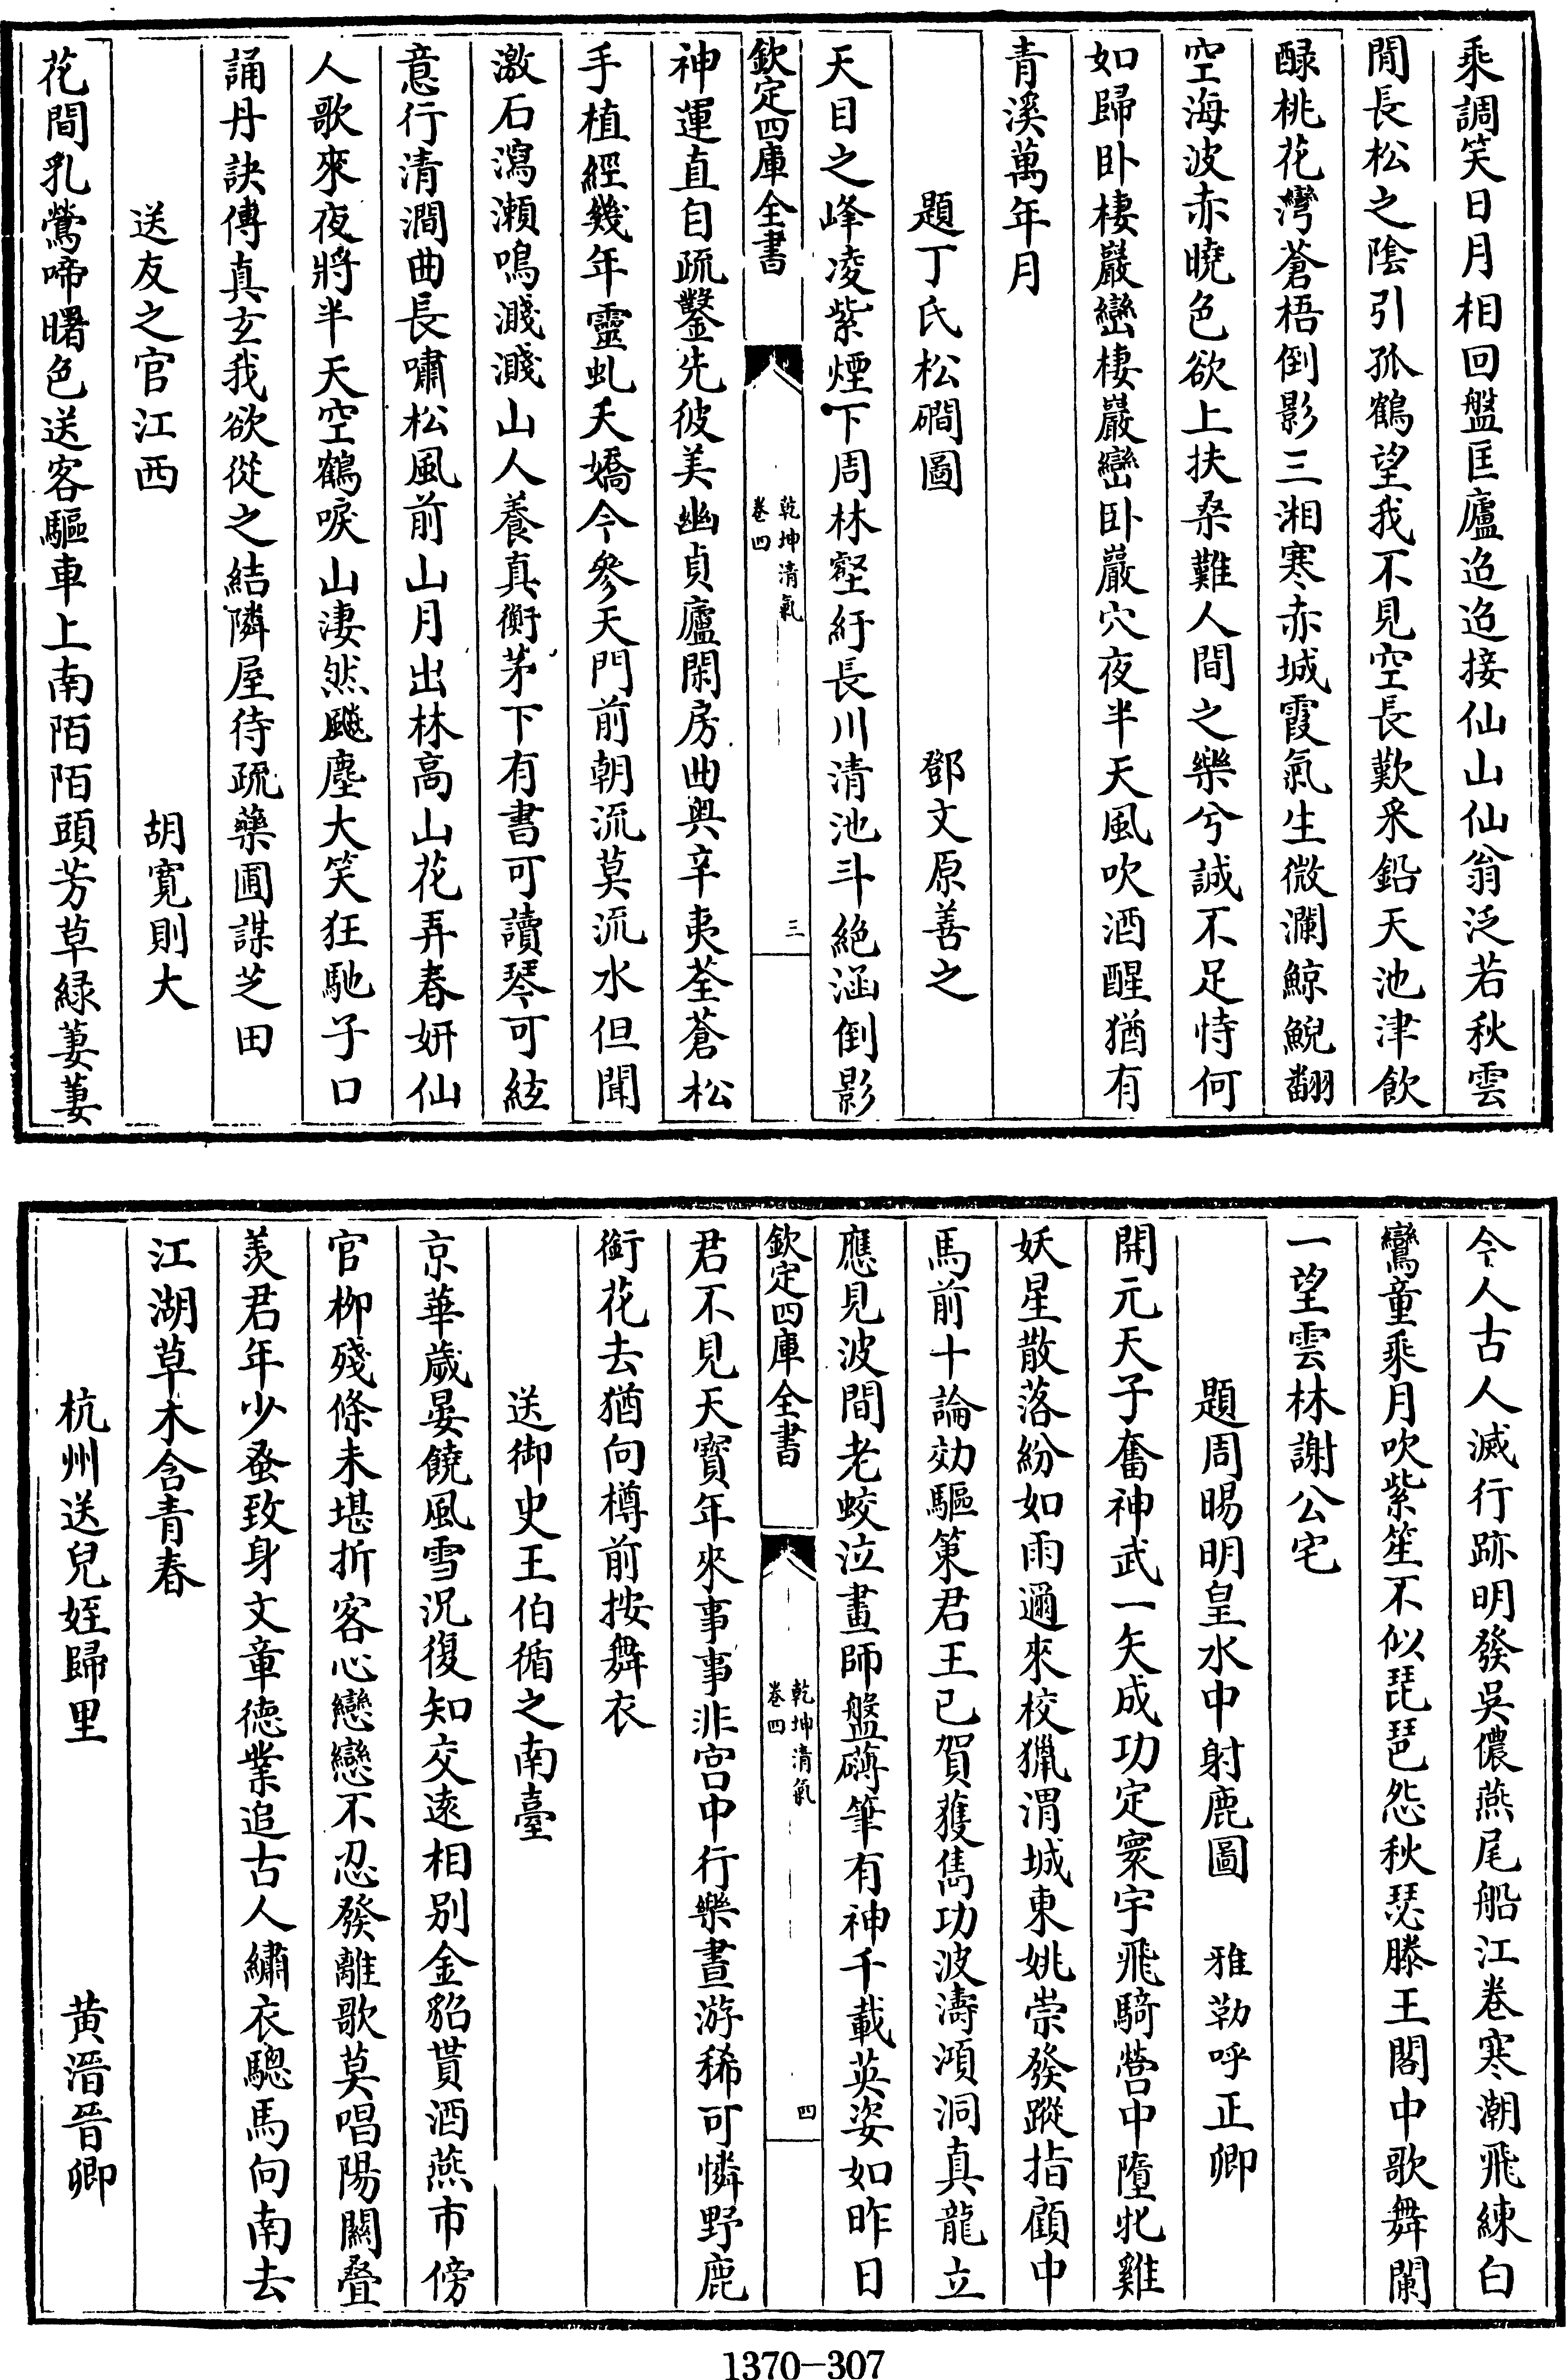 乘調笑日月相回盤匡廬迢迢接仙山仙翁泛若秋雲
閒長松之陰引孤鶴望我不見空長歎釆鉛天池津飲
醁桃花灣蒼梧倒影三湘寒赤城霞氣生微瀾鯨鯢翻
空海波赤曉色欲上扶桑難人間之樂兮誠不足恃何
如歸卧棲巖巒棲巖巒卧巖穴夜半天風吹酒醒猶有
青溪萬年月
題丁氏松磵圖　鄧文原善之
天目之峰凌紫煙下周林壑紆長川清池斗絶涵倒影
欽定四庫全書
乾坤清氣
卷四
三
神運直自疏鑿先彼美幽貞廬閑房曲奥辛夷荃蒼松
手植經幾年靈虬夭嬌今參天門前朝流莫流水但聞
激石瀉瀨鳴濺濺山人養真衡茅下有書可讀琴可絃
意行清澗曲長嘯松風前山月出林高山花弄春妍仙
人歌來夜將半天空鶴唳山淒然飈塵大笑狂馳子口
誦丹訣傳真玄我欲從之結隣屋待疏藥圃謀芝田
送友之官江西　胡寬則大
花間乳鶯啼曙色送客驅車上南陌陌頭芳草緑萋萋
今人古人滅行跡明發吳儂燕尾船江卷寒潮飛練白
鸞童乘月吹紫笙不似琵琶怨秋瑟滕王閣中歌舞闌
一望雲林謝公宅
題周昉明皇水中射鹿圖　雅勒呼正卿
開元天子奮神武一矢成功定寰宇飛騎營中墮牝雞
妖星散落紛如雨邇來校獵渭城東姚崇發蹤指顧中
馬前十論効驅策君王已賀獲雋功波濤澒洞真龍立
應見波間老蛟泣畫師盤礴筆有神千載英姿如昨日
欽定四庫全書
乾坤清氣
卷四
四
君不見天寳年來事事非宫中行樂晝游稀可憐野鹿
銜花去猶向樽前按舞衣
送御史王伯循之南臺
京華歲晏饒風雪況復知交逺相别金貂貰酒燕市傍
官栁殘條未堪折客心戀戀不忍發離歌莫唱陽關疊
羨君年少蚤致身文章德業追古人繡衣驄馬向南去
江湖草木含青春
杭州送兒姪歸里　黃溍晉卿
1370-307